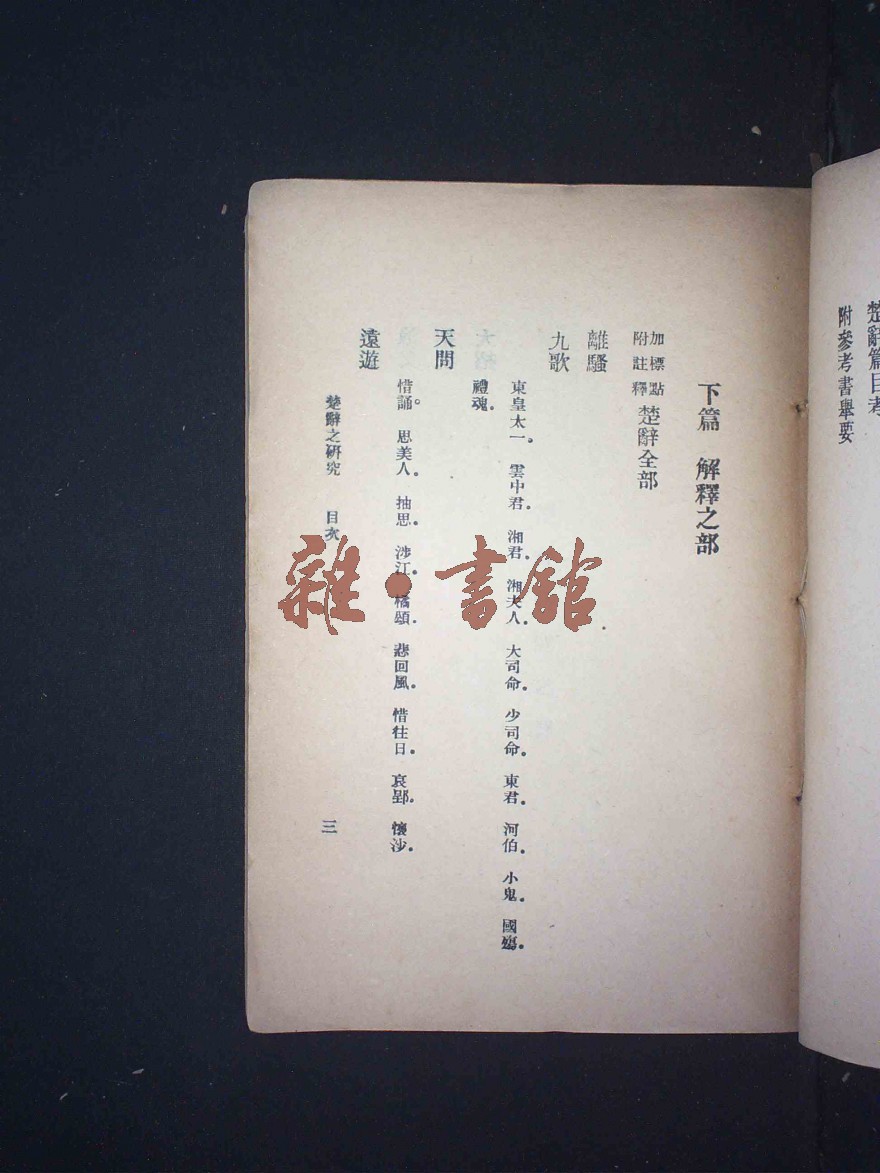 楚辭篇目考
附參考書舉要
下篇 解釋之部
加標點附註釋 楚辭全部
離騷
九歌
東皇太一。 雲中君。 湘君。 湘夫人。 大司命。 少司命。 東君。 河伯。 小鬼。 國殤。
禮魂。
天問
惜誦。 思美人。 抽思。 涉江。 橘頌。 悲回風。 惜往日。 哀郢。 懷沙。
遠遊
楚辭之研究 目次
三
雜·書館